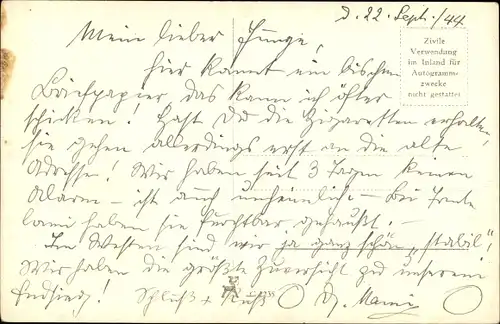 D. 22. Sept. 44
Mein lieber Junge,
Zivile
Verwendung
im Inland für
Autogramm-
zwecke
nicht gestattet
hier kommt ein bischen
Briefpapier das kann ich öfter
schicken! Hast Du die Zigaretten erhalten,
sie gehen allerdings erst an die alte
Adresse! Wir haben seit 3 Tagen keinen
Alarm – ist auch unheimlich – bei
haben sie furchtbar gehaust. –
Im Westen sind wir ja ganz schön „stabil"!
Wir haben die größte Zuversicht zu unserem
Endsieg! Schluß + Kuß D. Mami